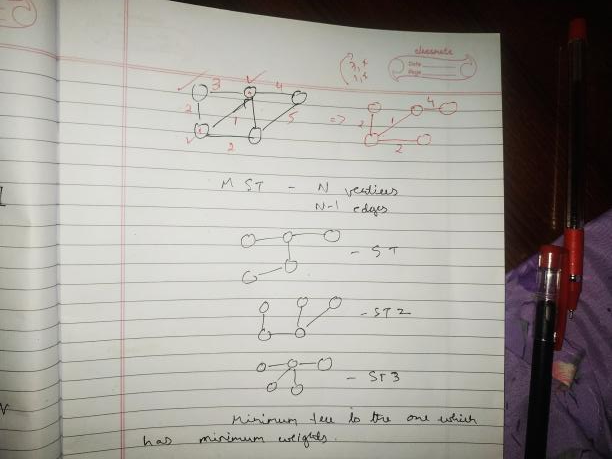 classmate
Date
Page
3 4
2 1 5
2
=> 2 1 4
2
MST - N vertices
N-1 edges
- ST
- ST2
- ST3
Minimum tree is the one which
has minimum weights.